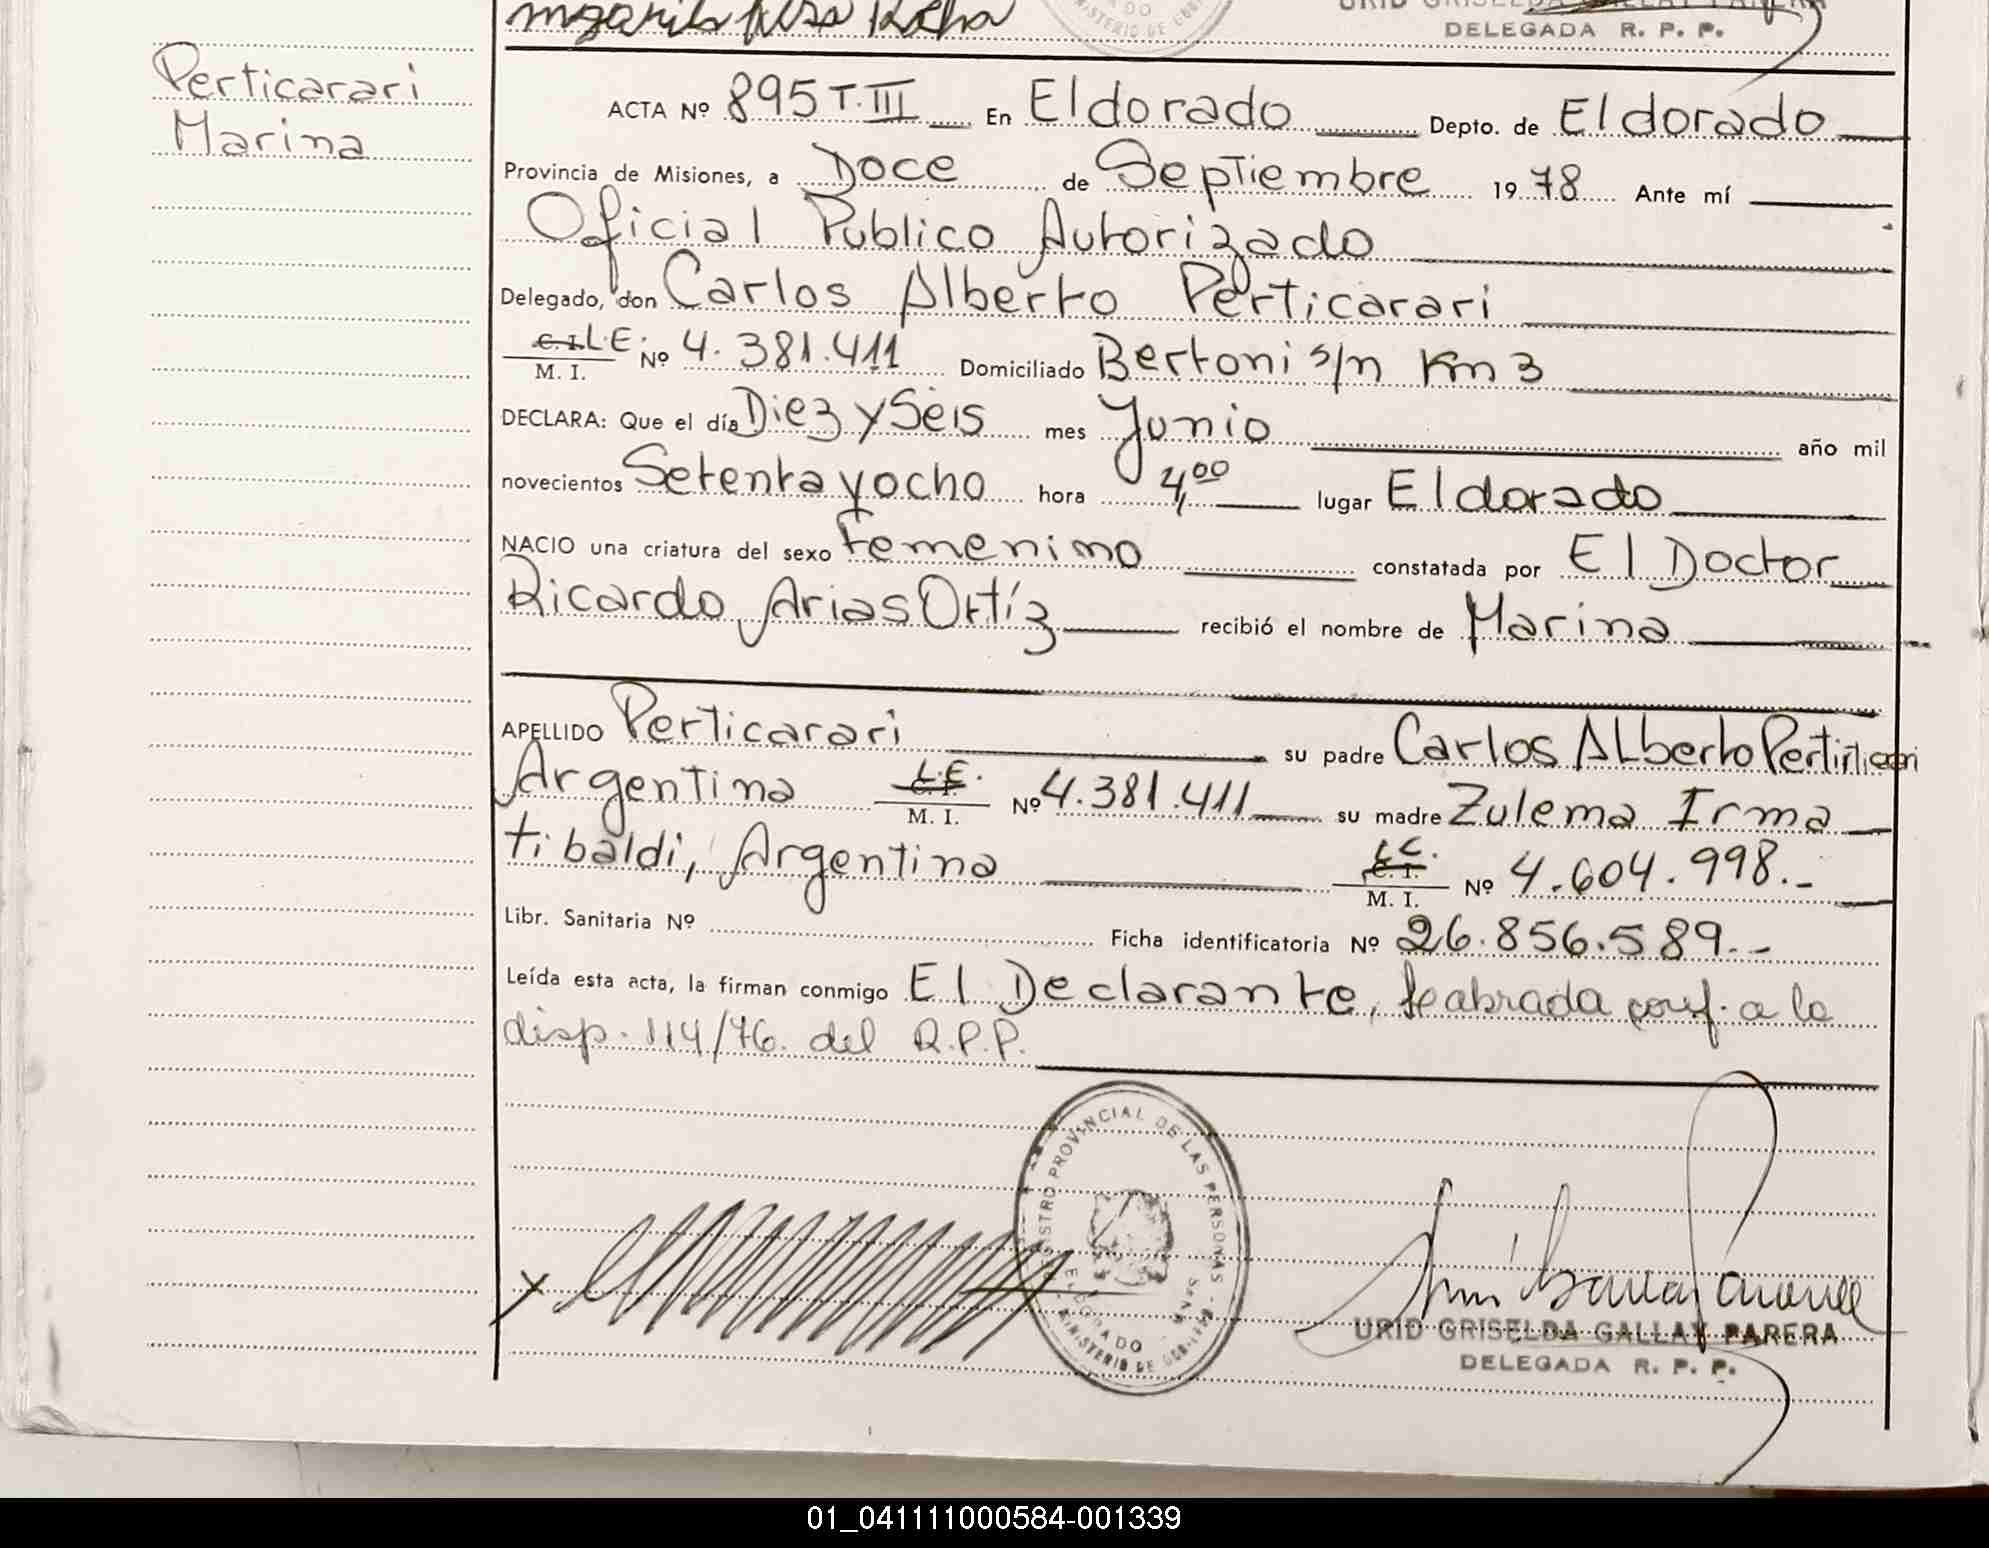 DELEGADA R. P. P.
Perticarari
Marina
ACTA Nº 895 T. III En Eldorado Depto. de Eldorado
Provincia de Misiones, a Doce de Septiembre 1978 Ante mí
Oficial Publico Autorizado
Delegado, don Carlos Alberto Perticarari
C.I. L.E. M. I. Nº 4.381.411 Domiciliado Bertoni s/n Km 3
DECLARA: Que el día Diez y Seis mes Junio año mil
novecientos Setenta y ocho hora 4,00 lugar Eldorado
NACIO una criatura del sexo Femenino constatada por El Doctor
Ricardo Arias Ortíz recibió el nombre de Marina
APELLIDO Perticarari su padre Carlos Alberto
Argentina L.E. M. I. Nº 4.381.411 su madre Zulema Irma
tibaldi, Argentina L.C. C.I. M. I. Nº 4.604.998.-
Libr. Sanitaria Nº Ficha identificatoria Nº 26.856.589.-
Leída esta acta, la firman conmigo El Declarante, labrada conf. a la
disp. 114/76. del R.P.P.
PROVINCIAL DE LAS PERSONAS
MINISTERIO DE
URID GRISELDA GALLAY PARERA
DELEGADA R. P. P.
01_041111000584-001339